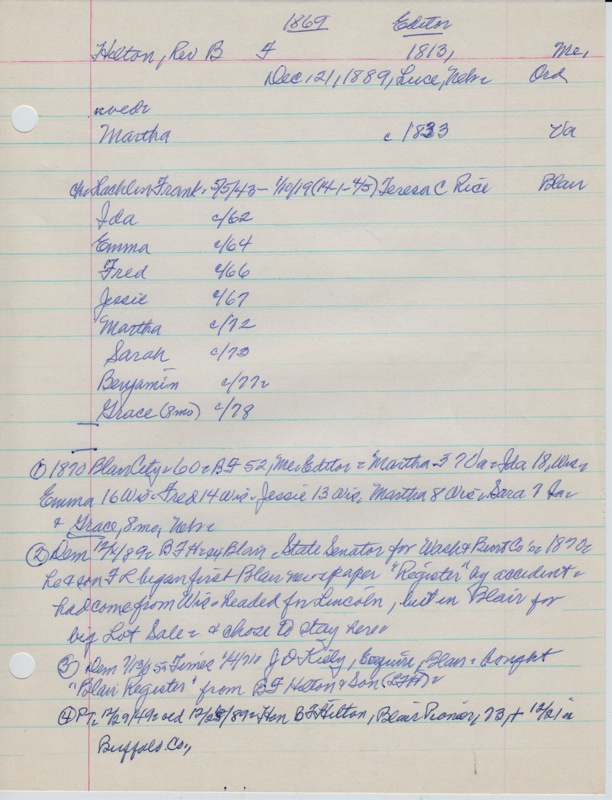 1869 Editor
Hilton, Rev B F 1813, Me,
Dec 21, 1889, Luce, Nebr Ord
Martha c 1833 Va
ch= Lochlin Frank= 5/5/43 - 1/10/19 (14-1-4/5) Teresa C Rice Blair
Ida c/62
Emma c/64
Fred c/66
Jessie c/67
Martha c/72
Sarah c/73
Benjamin c/77
Grace (8mo) c/78
① 1870 Blair City = 60 = B F 52, Me Editor = Martha 37 Va = Ida 18, Wis =
Emma 16 Wis = Fred 14 Wis = Jessie 13 Wis, Martha 8 Wis = Sara 7 Ia =
& Grace, 8mo, Nebr =
② Dem 89 = B F H Blair = State Senator for Wash & Burt Co's = 1870 =
he & son F R began first Blair newspaper "Register" by accident =
had come from Wis = headed for Lincoln, but in Blair for
big Lot Sale = & chose to stay here =
③ Dem 7/13/5 = Times J O Kiely, Esquire, Blair = bought
"Blair Register" from B F Hilton & Son
④ PT= 12/29/49 = Hon B F Hilton, Blair Pioneer, 73, + 12/21 in
Buffalo Co.,